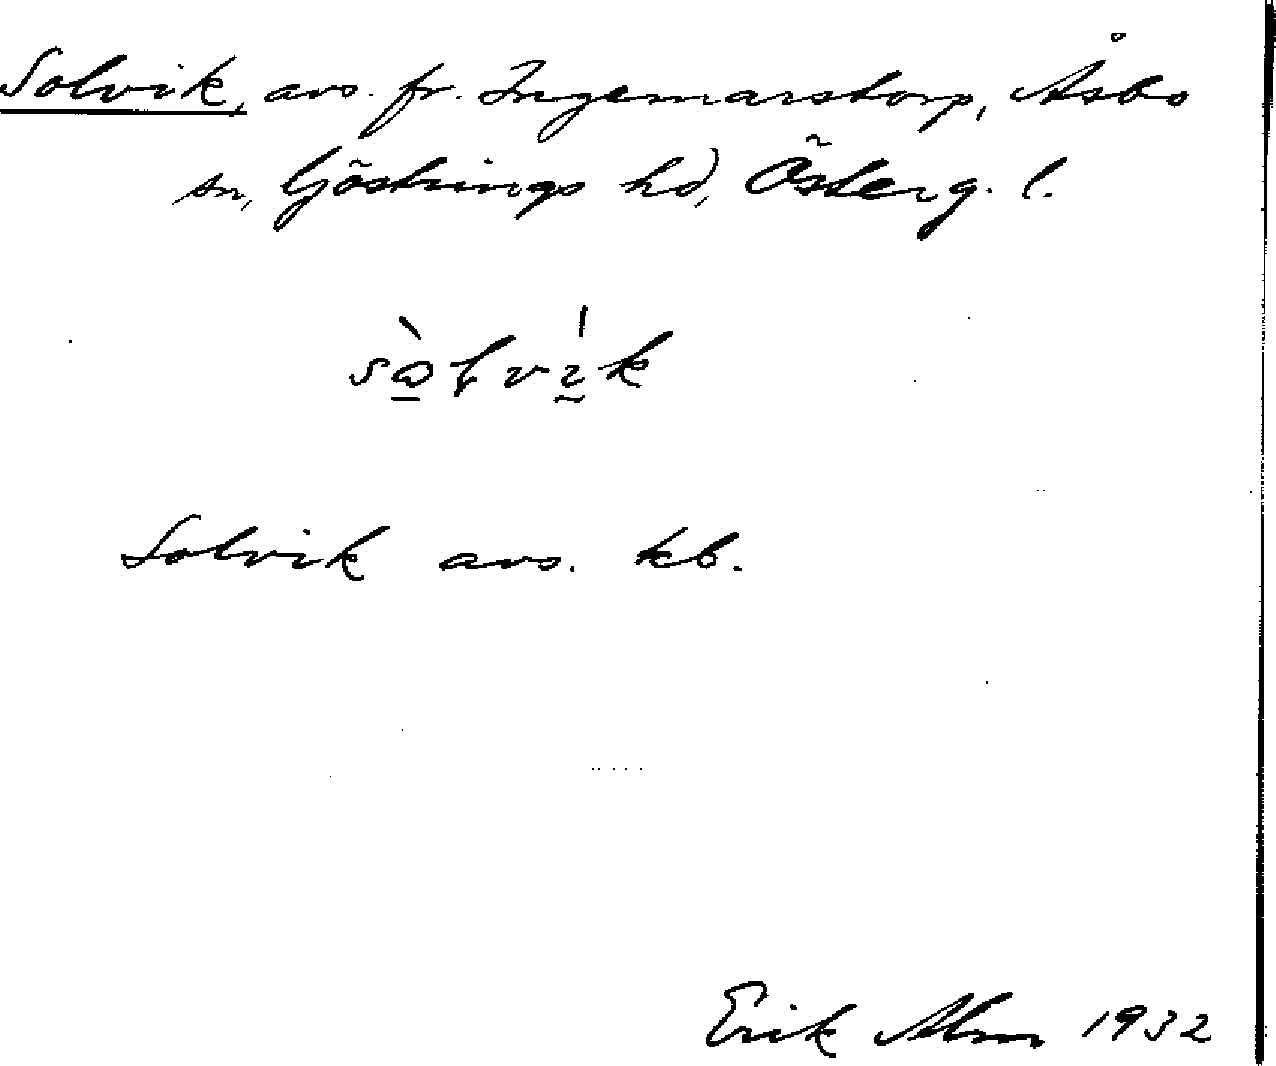 Solvik, avs. fr. Ingemarstorp, Åsbo
sn, Göstrings hd, Österg. l.
sò̲lvı̰́k
Solvik avs. kb.
Erik Alm 1932